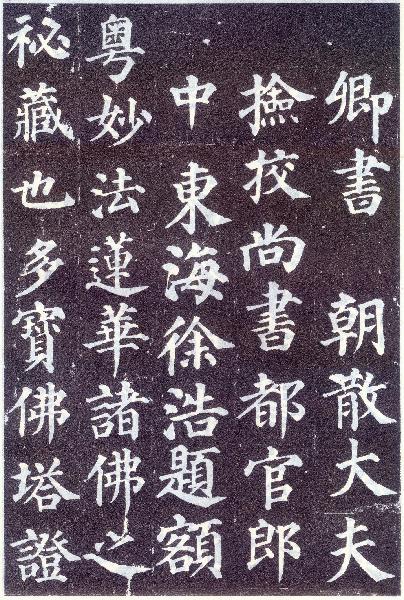 卿書 朝散大夫
撿挍尚書都官郎
中 東海徐浩題額
粤妙法蓮華諸佛之
祕藏也多寶佛塔證